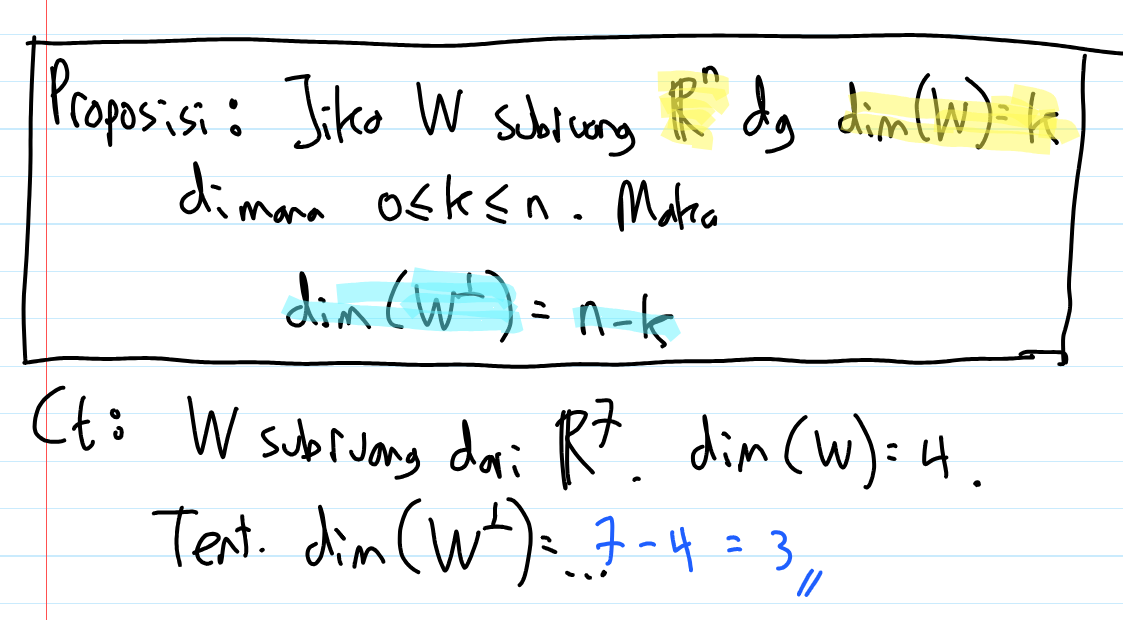 Proposisi: Jika W subruang ℝⁿ dg dim(W) = k
dimana 0 ≤ k ≤ n. Maka
dim(W^⊥) = n - k
Ct: W subruang dari ℝ⁷. dim(W) = 4.
Tent. dim(W^⊥) = ... 7 - 4 = 3 //